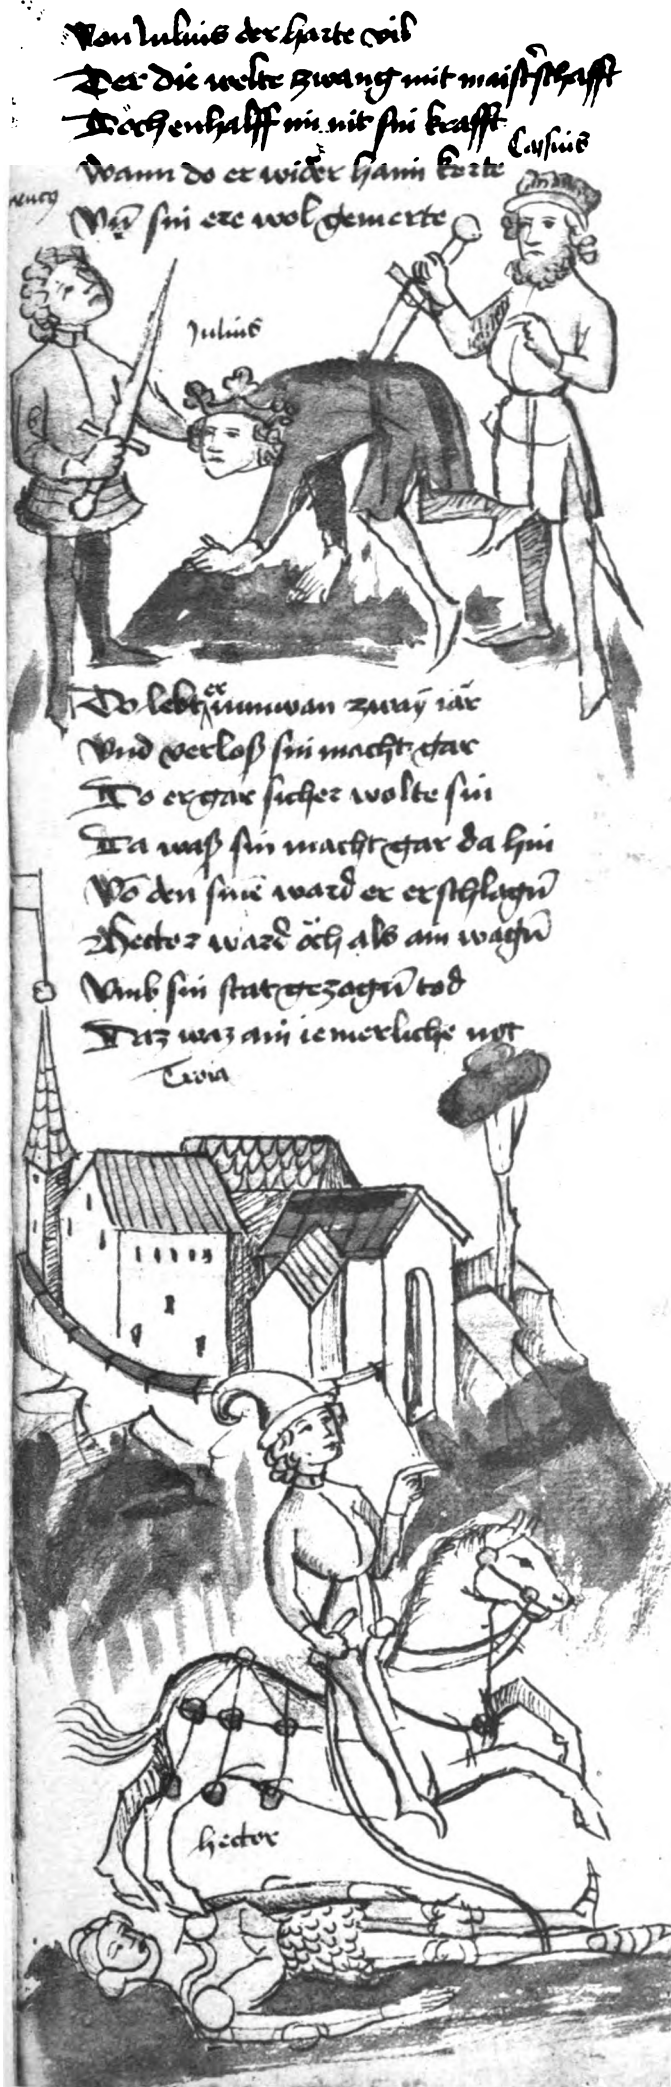 Von Julius der harte vil
Der die welte zwang mit maisterschafft
Doch enhalff in nit sin krafft
Cassius
Wann do er wider haim kerte
Vn̄ sin ere wol gemerte
Julius
Do lebt er nunwan zway iär
Vnd verloß sin macht gar
Do er gar sicher wolte sin
Da waß sin macht gar da hin
Vō den sinē ward er erschlagn̄
Hector ward öch als ain wagn̄
Vmb sin stat gezogn̄ tod
Daz waz ain iemerliche not
Troia
hector